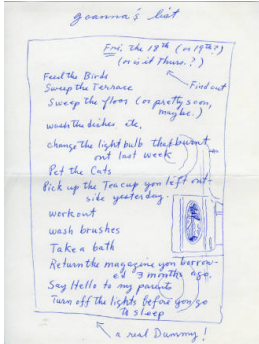 Joanna's list
Fri, the 18th (or 19th?)
(or is it Thurs.?)
Find out
Feed the Birds
Sweep the Terrace
Sweep the floor (or pretty soon,
maybe.)
wash the dishes, etc,
change the light bulb that burnt
out last week
Pet the Cats
Pick up the Teacup you left out-
side yesterday.
workout
wash brushes
Take a bath
Return the magazine you borrow-
ed 3 months ago.
Say Hello to my parents
Turn off the lights before you go
to sleep
a real Dummy!